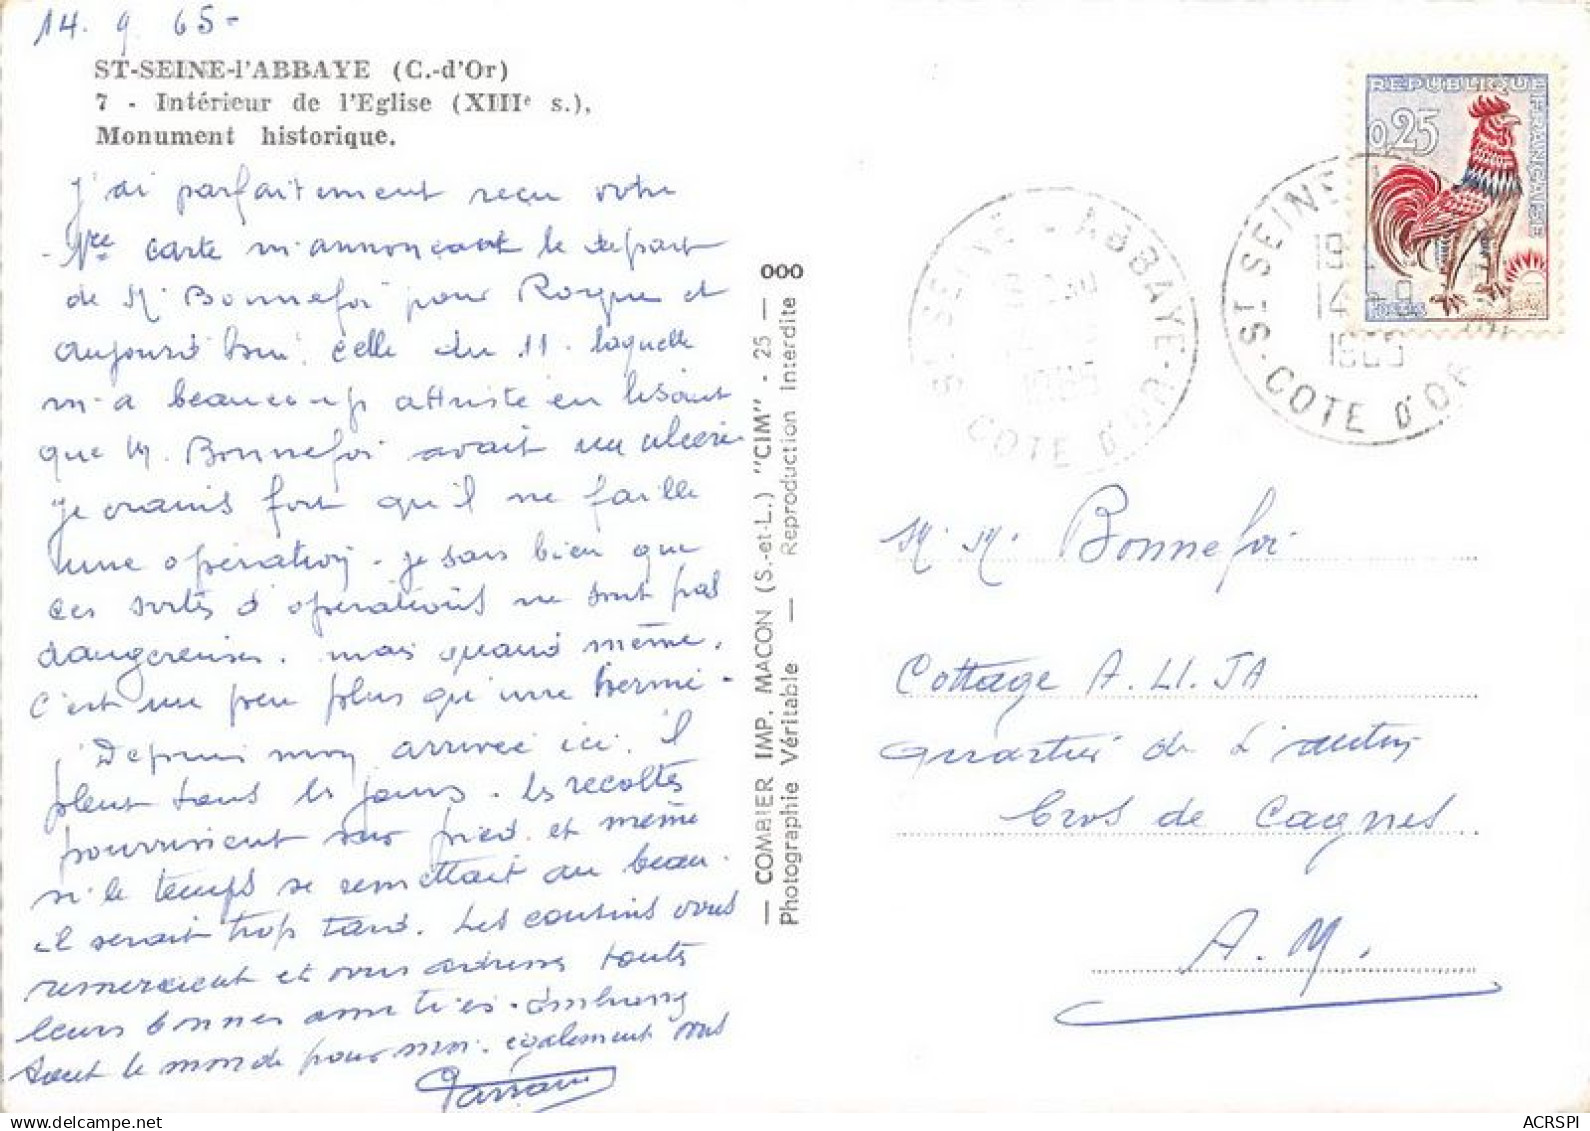 14. 9 65-
ST-SEINE-l'ABBAYE (C.-d'Or)
7 - Intérieur de l'Eglise (XIIIe s.),
Monument historique.
J'ai parfaitement reçu votre
1ère carte m'annonçant le départ
de M. Bonnefoi pour et
aujourd'hui celle du 11. laquelle
m'a beaucoup attristé en lisant
que M. Bonnefoi avait un ulcère
je crains fort qu'il ne faille
une opération. je sais bien que
ces sortes d'opérations ne sont pas
dangereuses. mais quand même.
C'est un peu plus qu'une hernie.
Depuis mon arrivée ici. il
pleut tous les jours. les récoltes
pourrissent sur pied. et même
si le temps se remettait au beau.
il serait trop tard. Les cousins vous
remercient et vous adressent toutes
leurs bonnes amitiés.
tout le monde pour moi. également vous
— COMBIER IMP. MACON (S.-et-L.) "CIM" - 25 — 000
Photographie Véritable — Reproduction Interdite
REPUBLIQUE FRANÇAISE
0,25
POSTES
ST SEINE - ABBAYE
COTE D'OR
1965
ST SEINE
14-9
COTE D'OR
M. M. Bonnefoi
Cottage A. LI. JA
Quartier de
Cros de Cagnes
A. M.
ACRSPI